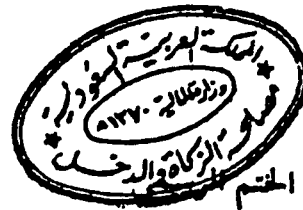 المملكة العربية السعودية
وزارة المالية ١٣٧٠ه
مصلحة الزكاة والدخل
الختم